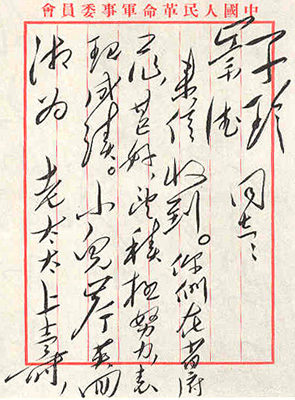 中國人民革命軍事委員會
子珍
崇德
同志:
来信收到。你們在省府
工作,甚好,望積極努力,表
現成績。小兒岸英回
湘为 老太太上壽,